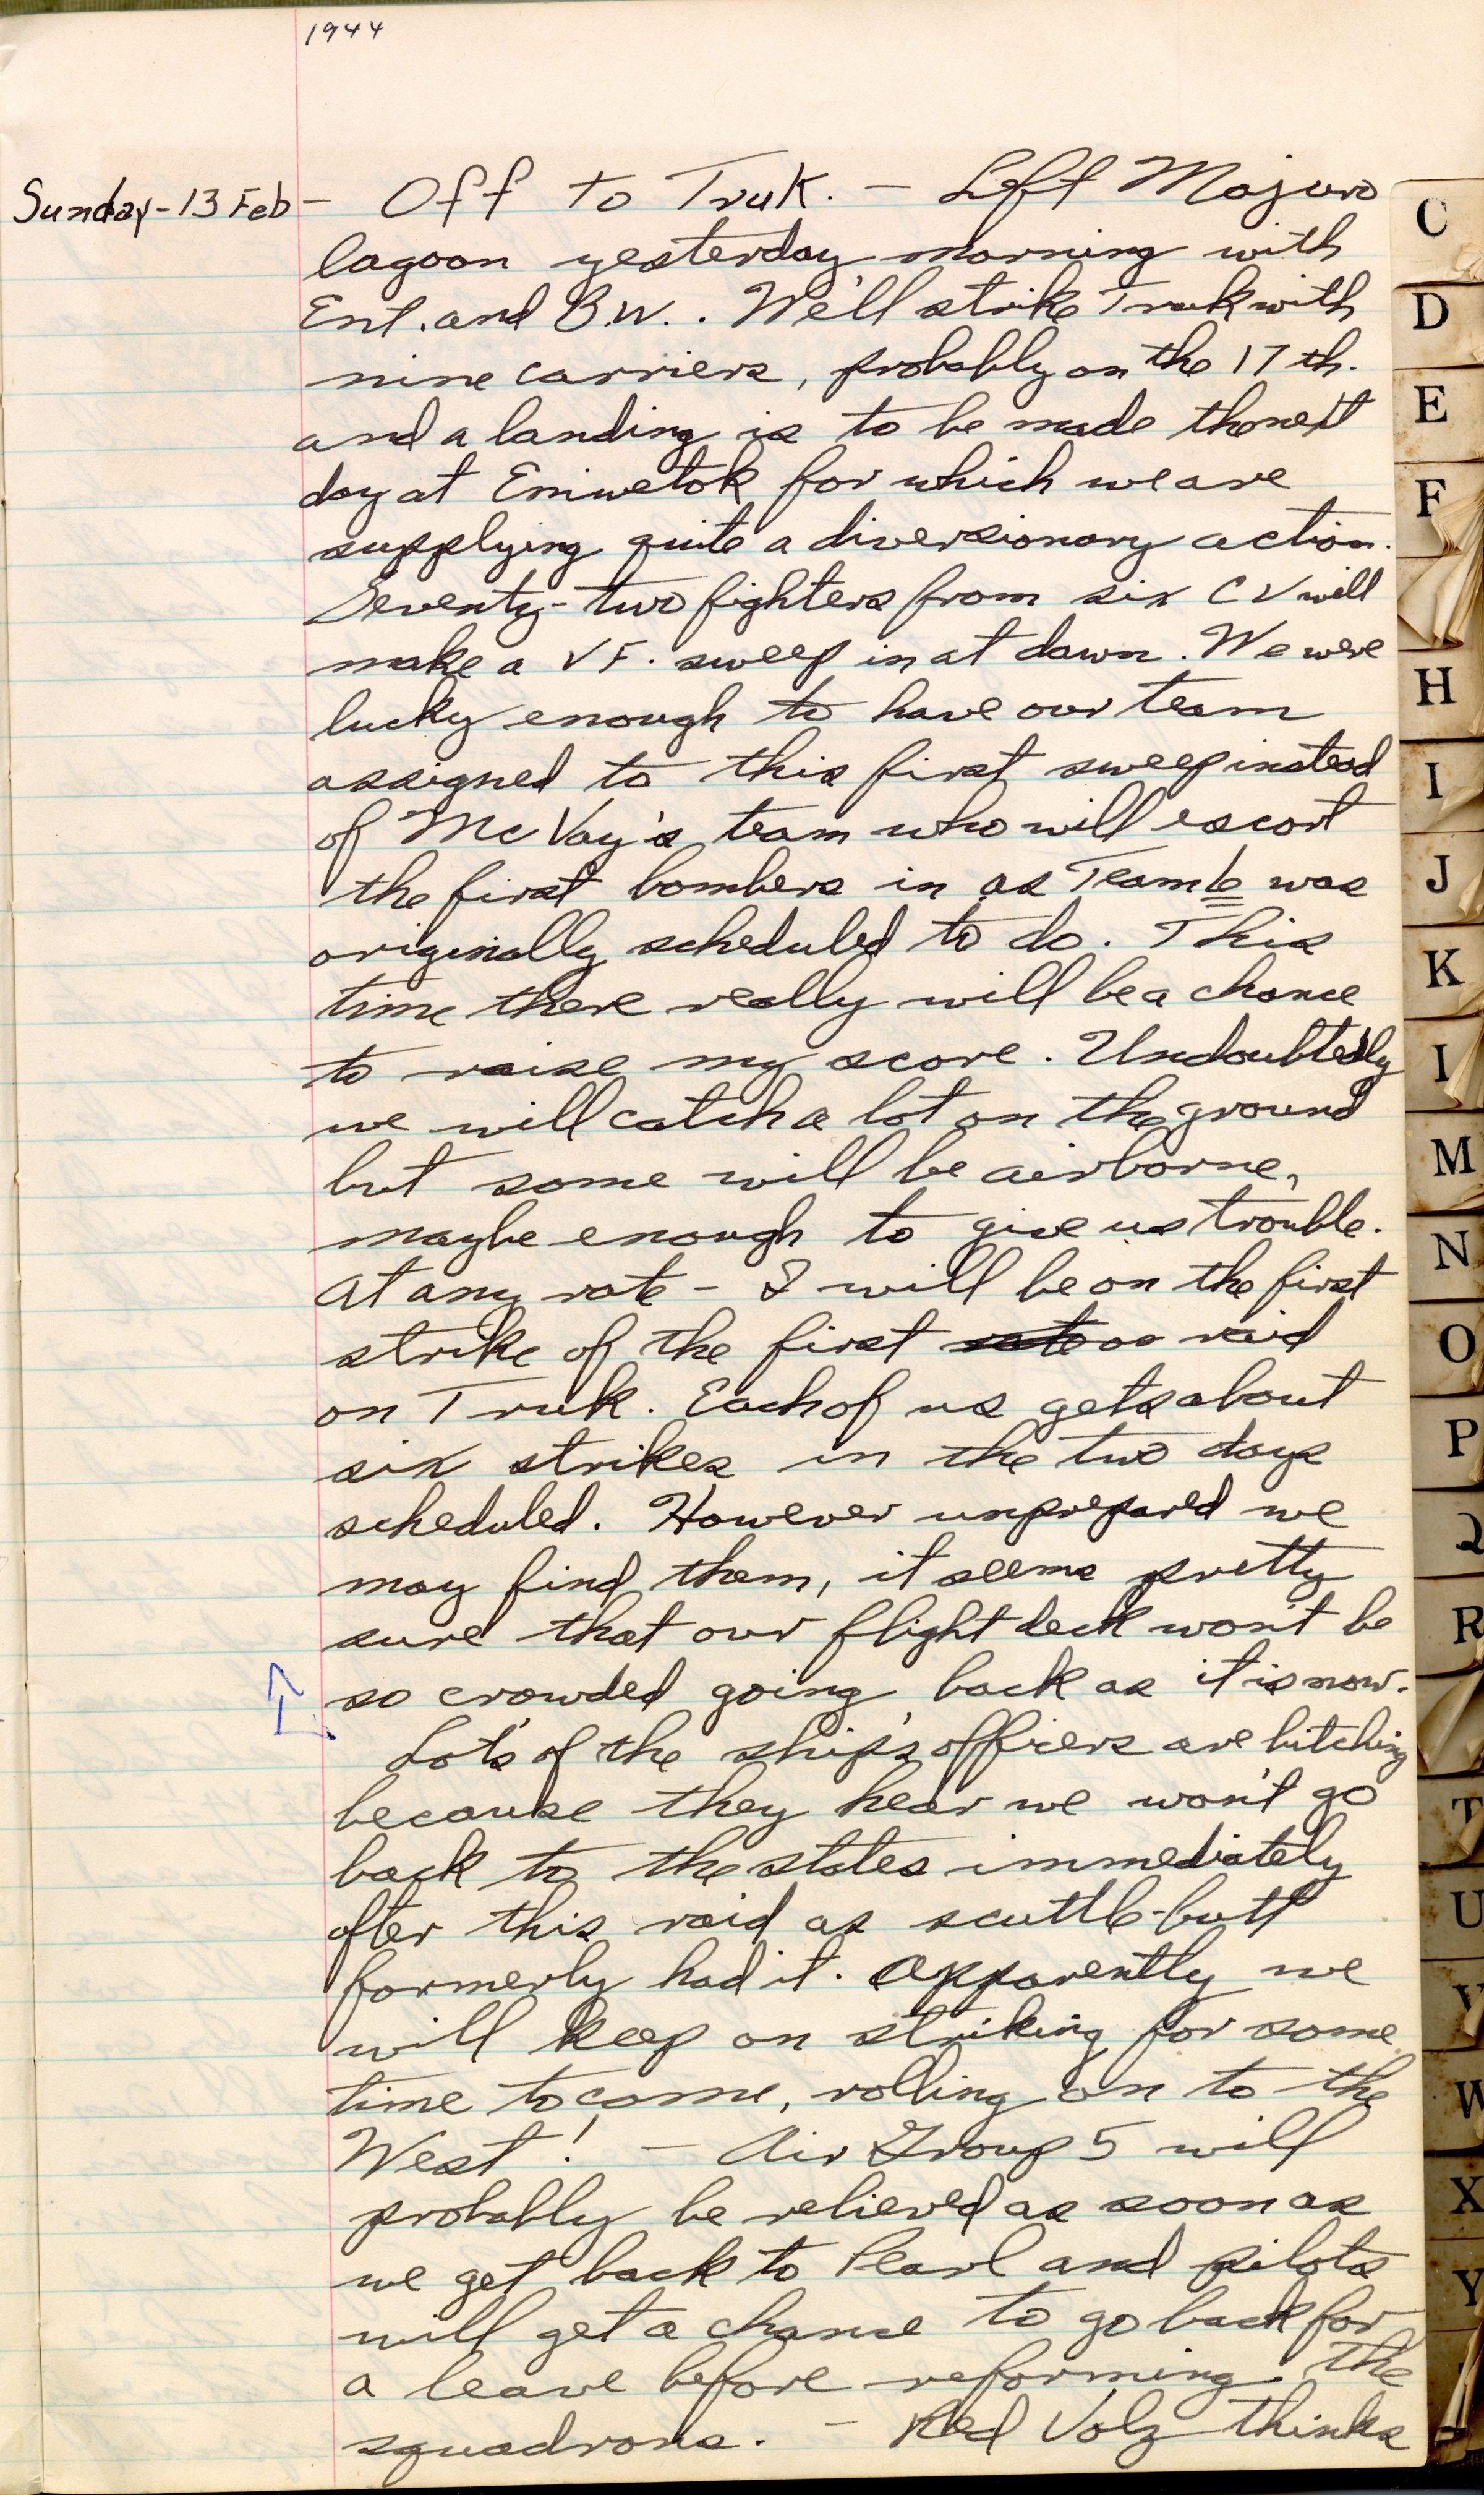 1944
Sunday-13 Feb - Off to Truk. - Left Majuro
lagoon yesterday morning with
Ent. and B.W.. We'll strike Truk with
nine carriers, probably on the 17th.
and a landing is to be made the next
day at Eniwetok for which we are
supplying quite a diversionary action.
Seventy-two fighters from six CV will
make a VF. sweep in at dawn. We were
lucky enough to have our team
assigned to this first sweep instead
of McVay's team who will escort
the first bombers in as Team b was
originally scheduled to do. This
time there really will be a chance
to raise my score. Undoubtedly
we will catch a lot on the ground
but some will be airborne,
maybe enough to give us trouble.
At any rate - I will be on the first
strike of the first raid
on Truk. Each of us gets about
six strikes in the two days
scheduled. However unprepared we
may find them, it seems pretty
sure that our flight deck won't be
so crowded going back as it is now.
Lot's of the ship's officers are bitching
because they hear we won't go
back to the states immediately
after this raid as scuttle-butt
formerly had it. Apparently we
will keep on striking for some
time to come, rolling on to the
West! - Air Group 5 will
probably be relieved as soon as
we get back to Pearl and pilots
will get a chance to go back for
a leave before reforming the
squadrons. - Red Volz thinks
C
D
E
F
H
I
J
K
M
N
O
P
Q
R
T
U
V
W
X
Y